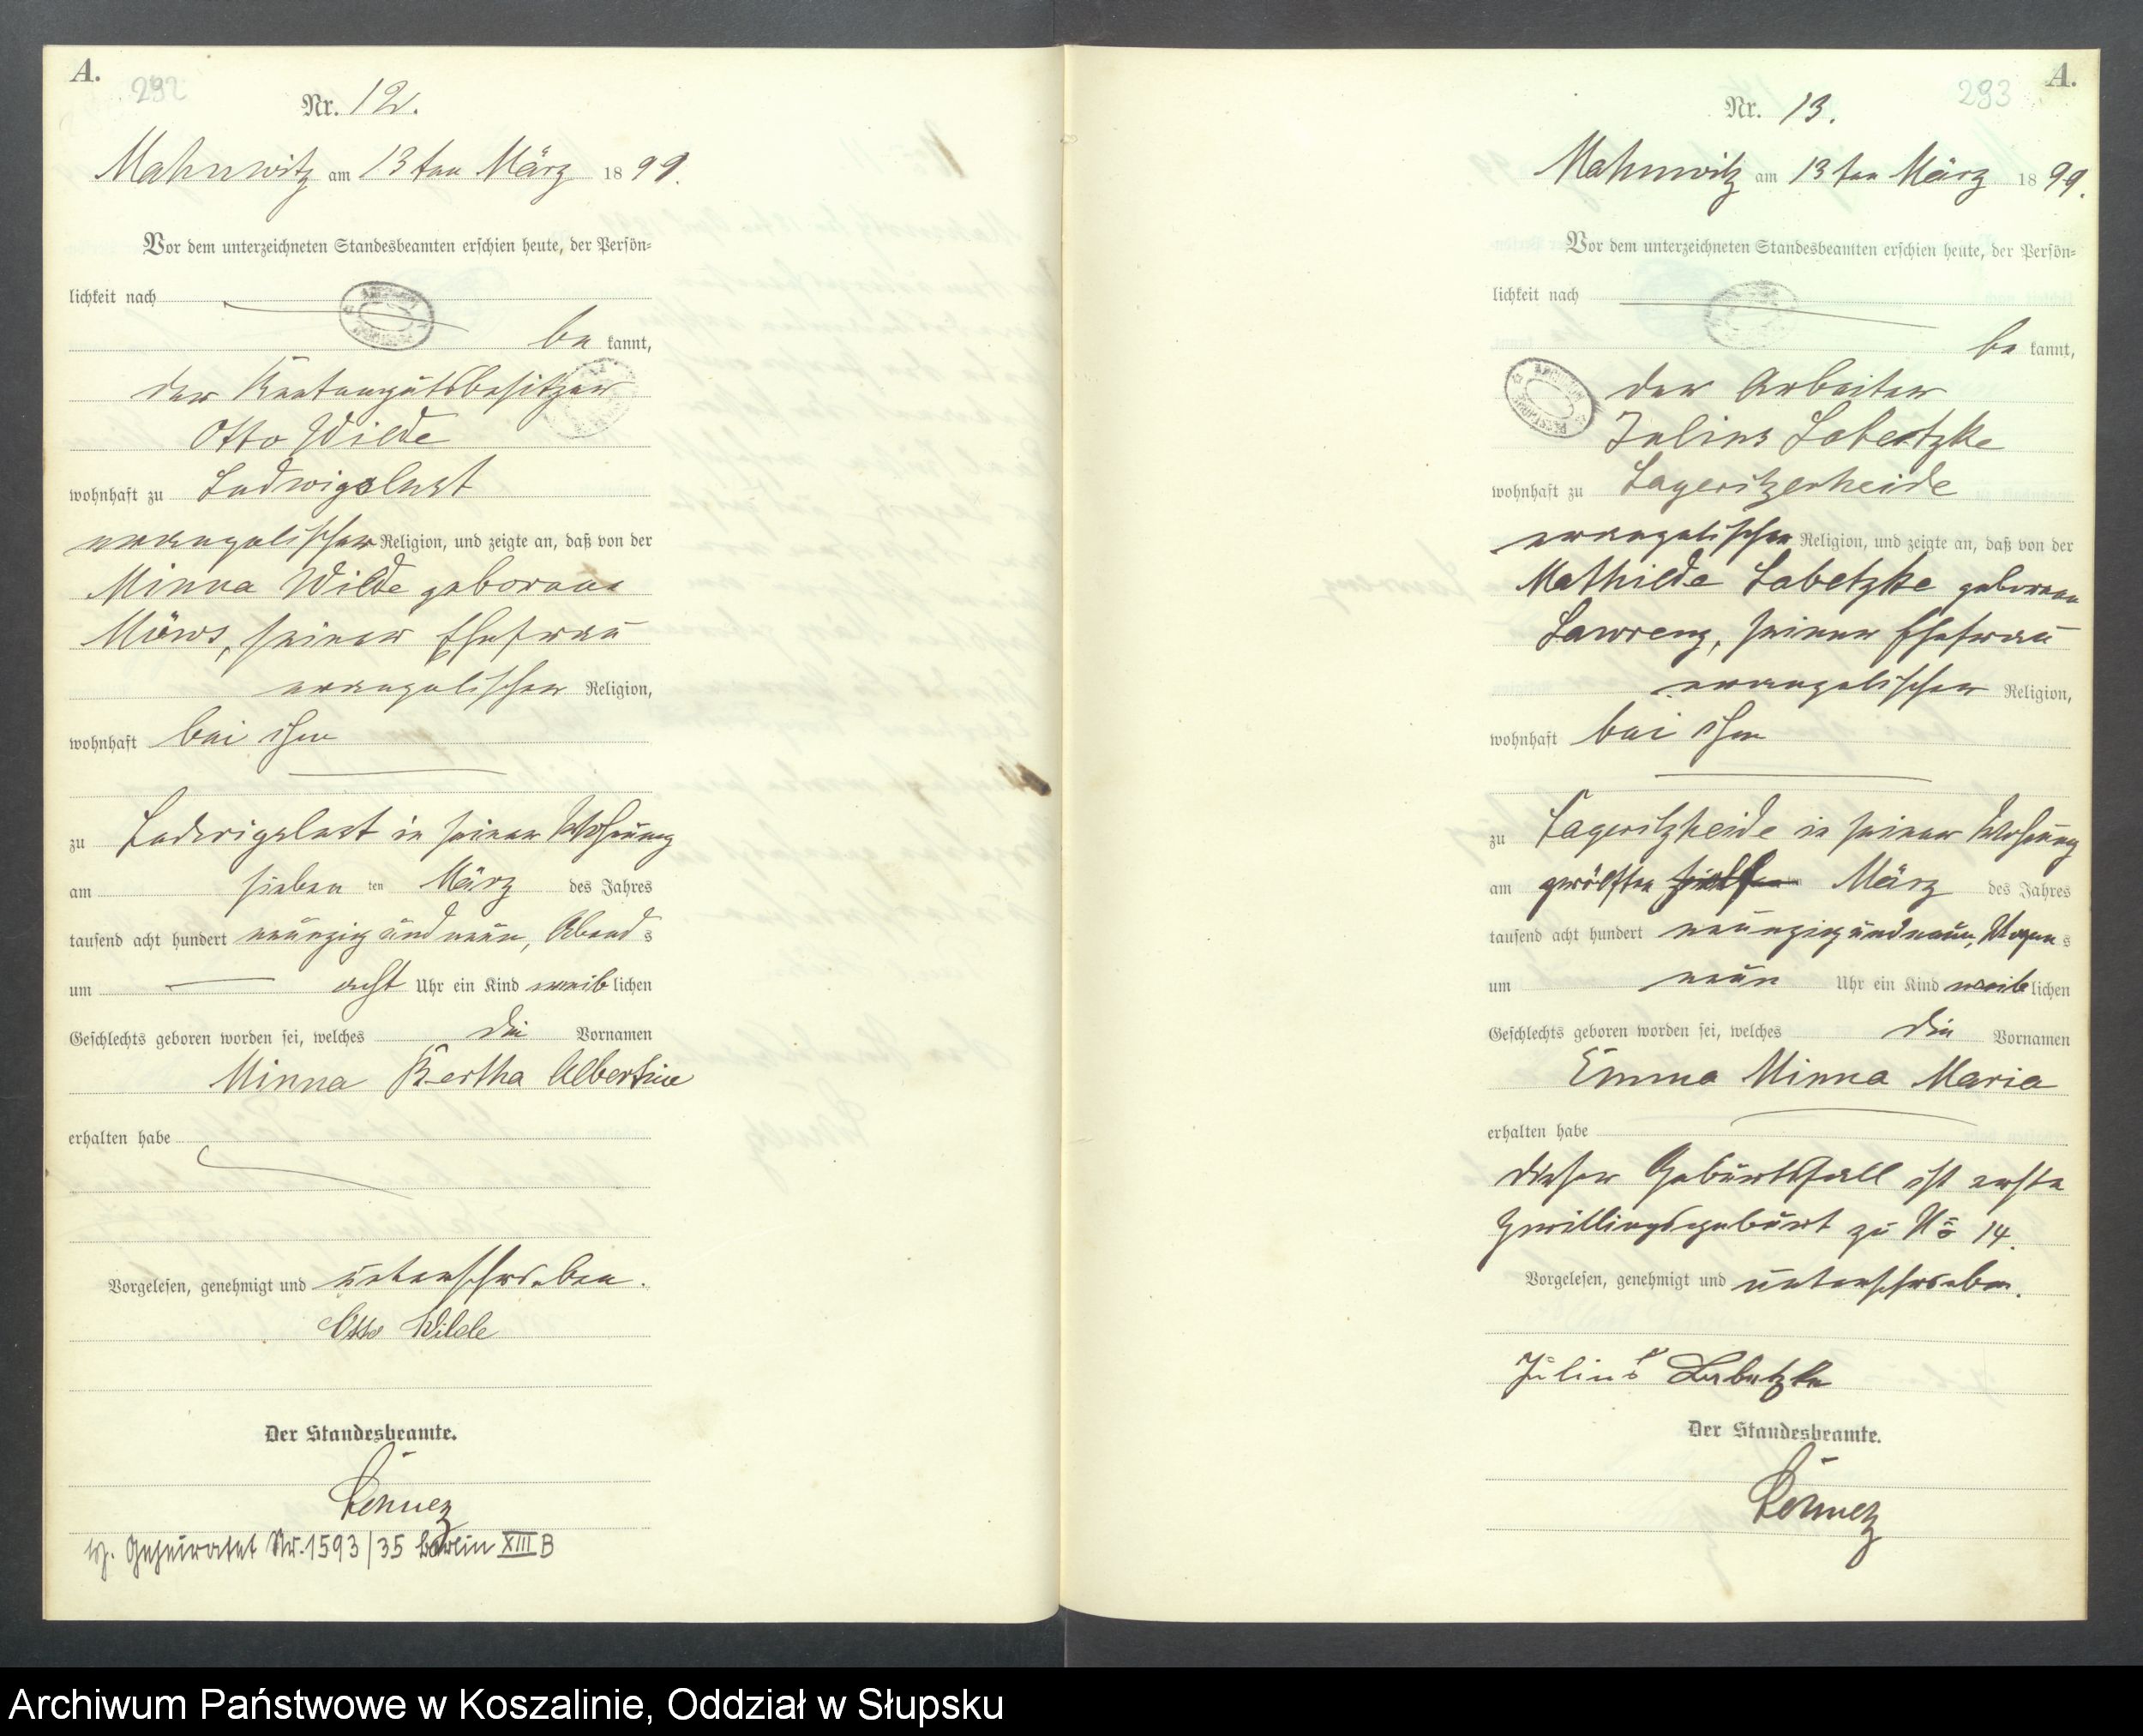 A.
292
Nr. 12.
Mahnwitz am 13ten März 1899.
Vor dem unterzeichneten Standesbeamten erschien heute, der Persön-
lichkeit nach
be kannt,
der Rentengutsbesitzer
Otto Wilde
wohnhaft zu Ludwigslust
evangelischer Religion, und zeigte an, daß von der
Minna Wilde geborene
Möws, seiner Ehefrau
evangelischer Religion,
wohnhaft bei ihm
zu Ludwigslust in seiner Wohnung
am sieben ten März des Jahres
tausend acht hundert neunzig und neun, Abend s
um acht Uhr ein Kind weib lichen
Geschlechts geboren worden sei, welches die Vornamen
Minna Bertha Albertine
erhalten habe
Vorgelesen, genehmigt und unterschrieben.
Otto Wilde
Der Standesbeamte.
Geheiratet Nr. 1593/35 Berlin XIII B
A.
293
Nr. 13.
Mahnwitz am 13ten März 1899.
Vor dem unterzeichneten Standesbeamten erschien heute, der Persön-
lichkeit nach
be kannt,
der Arbeiter
Julius Labetzke
wohnhaft zu Lageritzerheide
evangelischer Religion, und zeigte an, daß von der
Mathilde Labetzke geboren
Lawrenz, seiner Ehefrau
evangelischer Religion,
wohnhaft bei ihm
zu Lageritzheide in seiner Wohnung
am zwölften März des Jahres
tausend acht hundert neunzig und neun, Morgen s
um neun Uhr ein Kind weib lichen
Geschlechts geboren worden sei, welches die Vornamen
Emma Minna Maria
erhalten habe
Dieser Geburtsfall ist erste
Zwillingsgeburt zu No 14.
Vorgelesen, genehmigt und unterschrieben.
Julius Labetzke
Der Standesbeamte.
Archiwum Państwowe w Koszalinie, Oddział w Słupsku